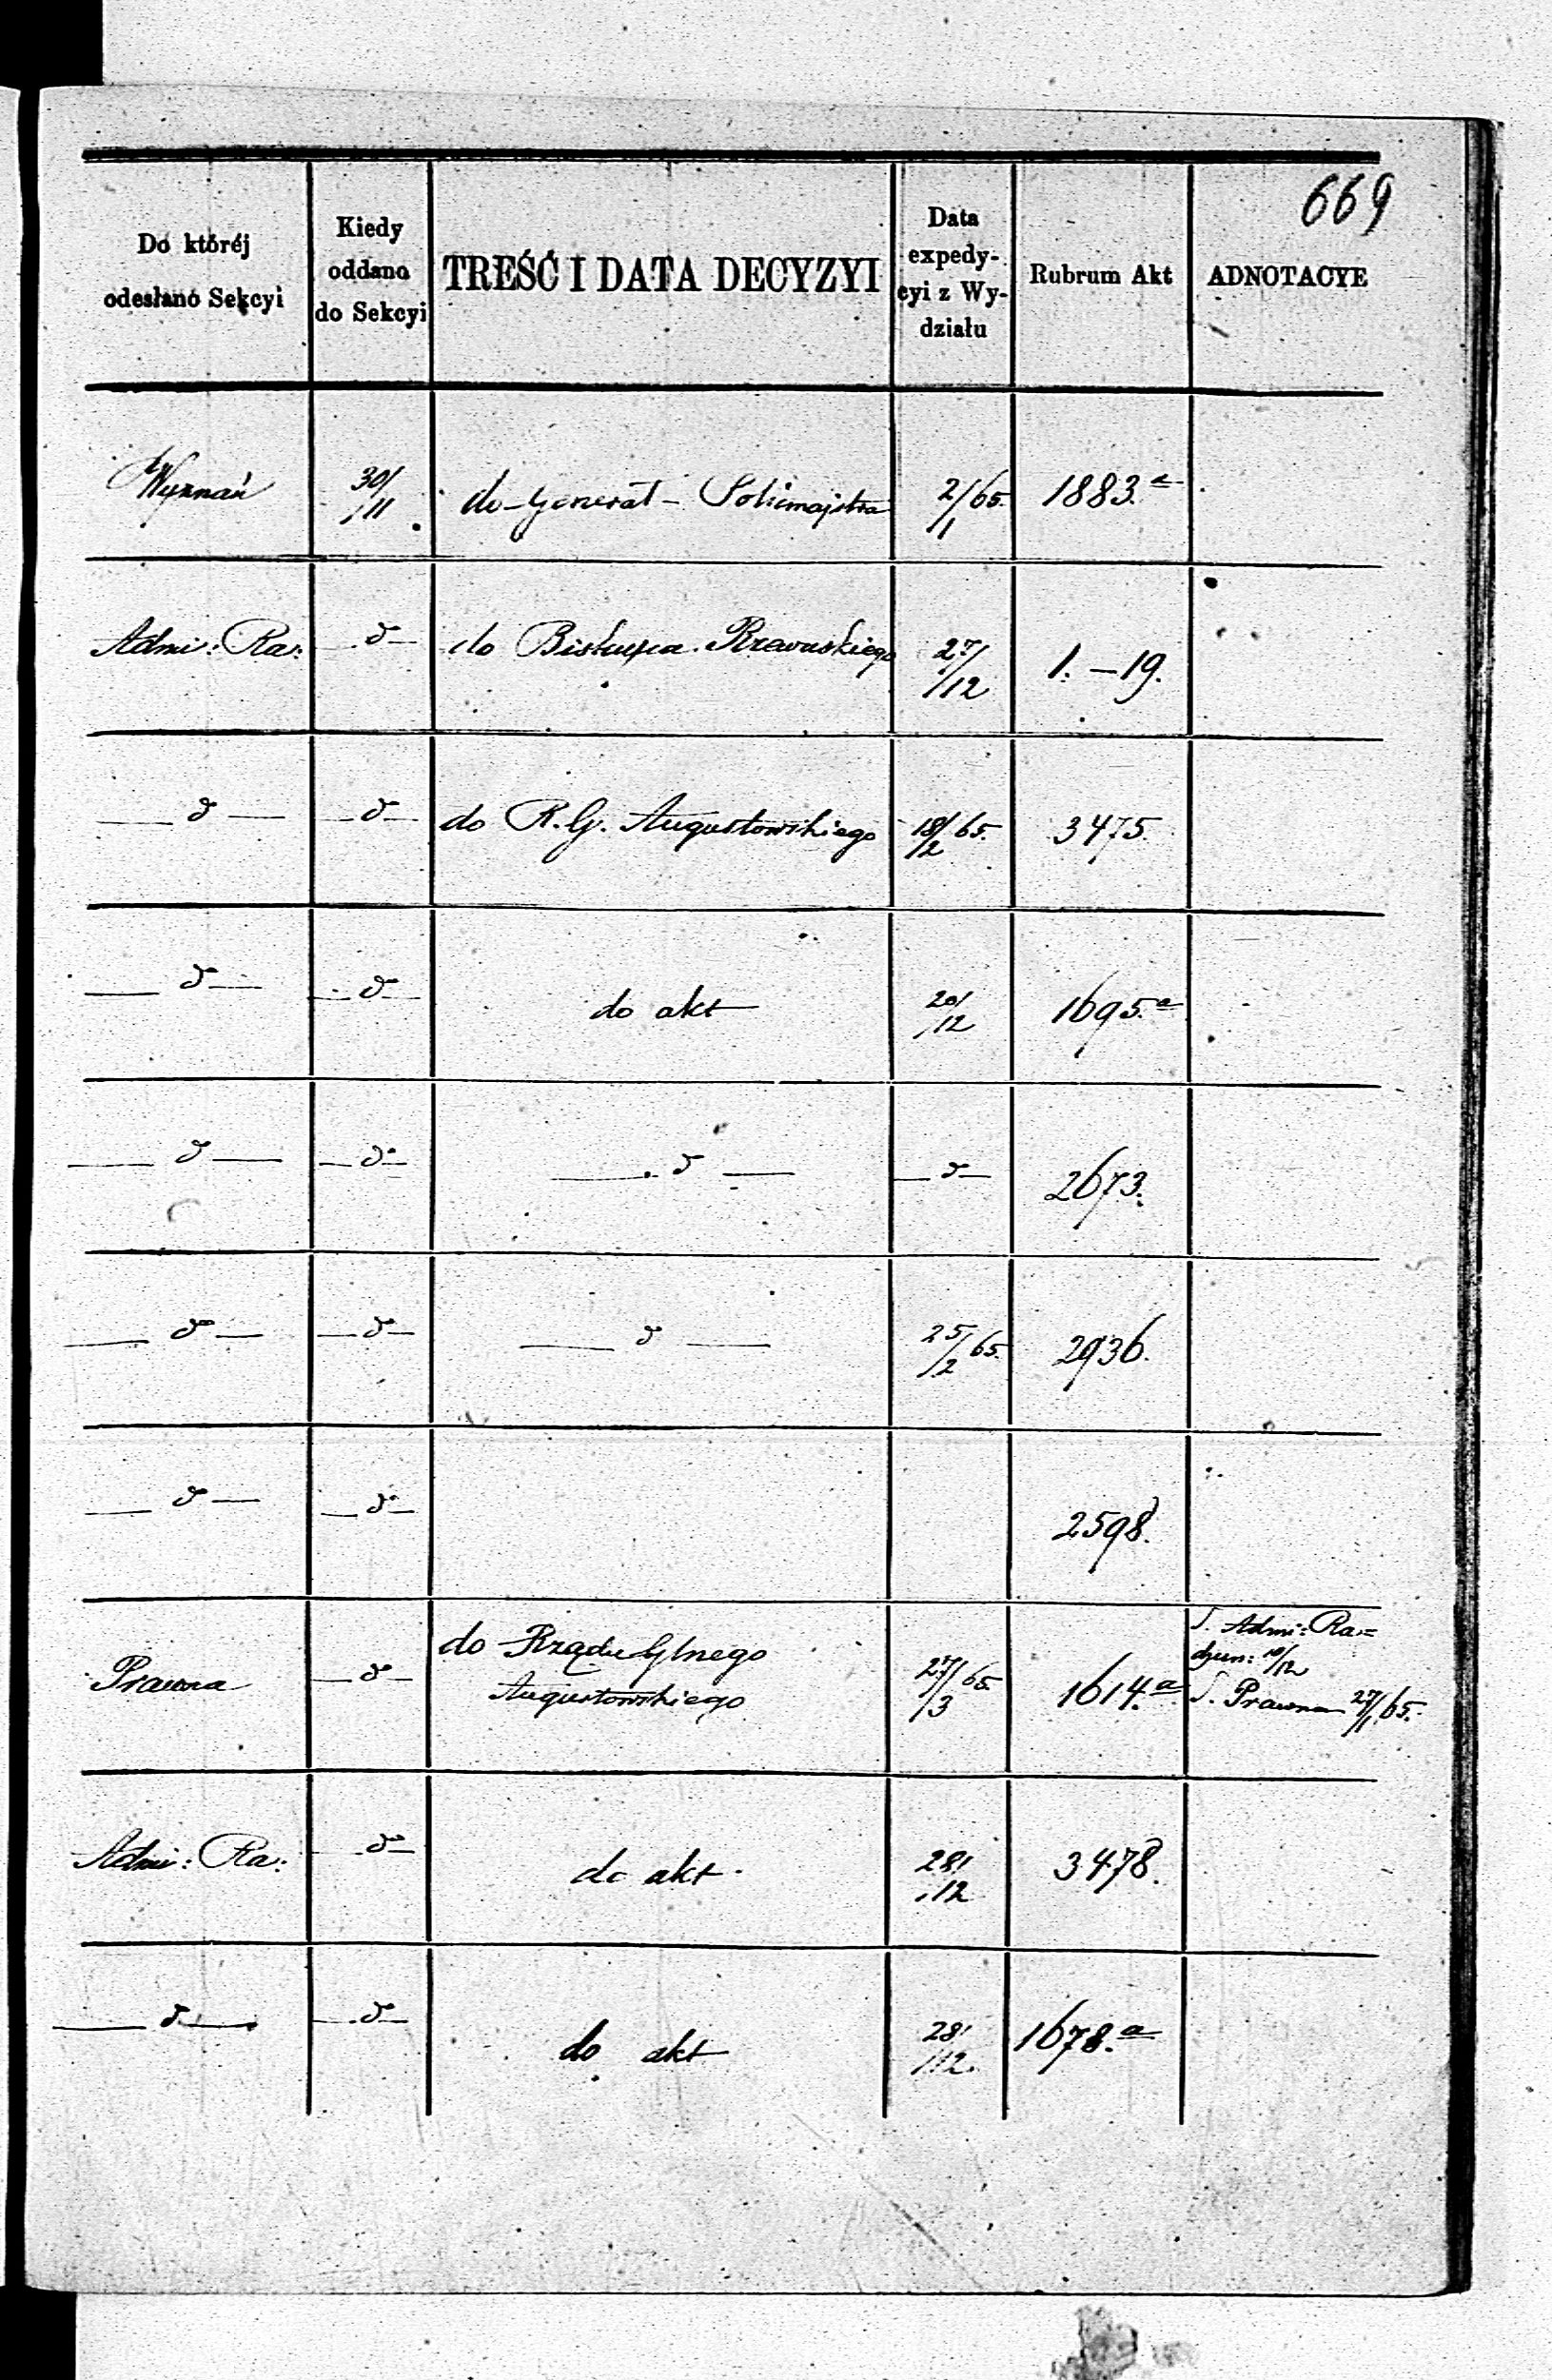 669
Do któréj odesłano Sekcyi | Kiedy oddano do Sekcyi | TREŚĆ I DATA DECYZYI | Data expedycyi z Wydziału | Rubrum Akt | ADNOTACYE
Wyznań | 30/11 | do Generał-Policmajstra | 2/1 65. | 1883.a
Admi: Ra: | d° | do Biskupa Rzewuskiego | 27/12 | 1.–19.
d° | d° | do R. G. Augustowskiego | 18/2 65. | 3475.
d° | d° | do akt | 20/12 | 1695.a
d° | d° | d° | d° | 2673.
d° | d° | d° | 25/2 65. | 2936.
d° | d° | | | 2598.
Prawna | d° | do Rządu Glnego Augustowskiego | 27/3 65. | 1614.a | S. Admi: Ra= 12 S. Prawna 27/1 65.
Admi: Ra: | d° | do akt | 28/12 | 3478.
d° | d° | do akt | 28/12. | 1678.a